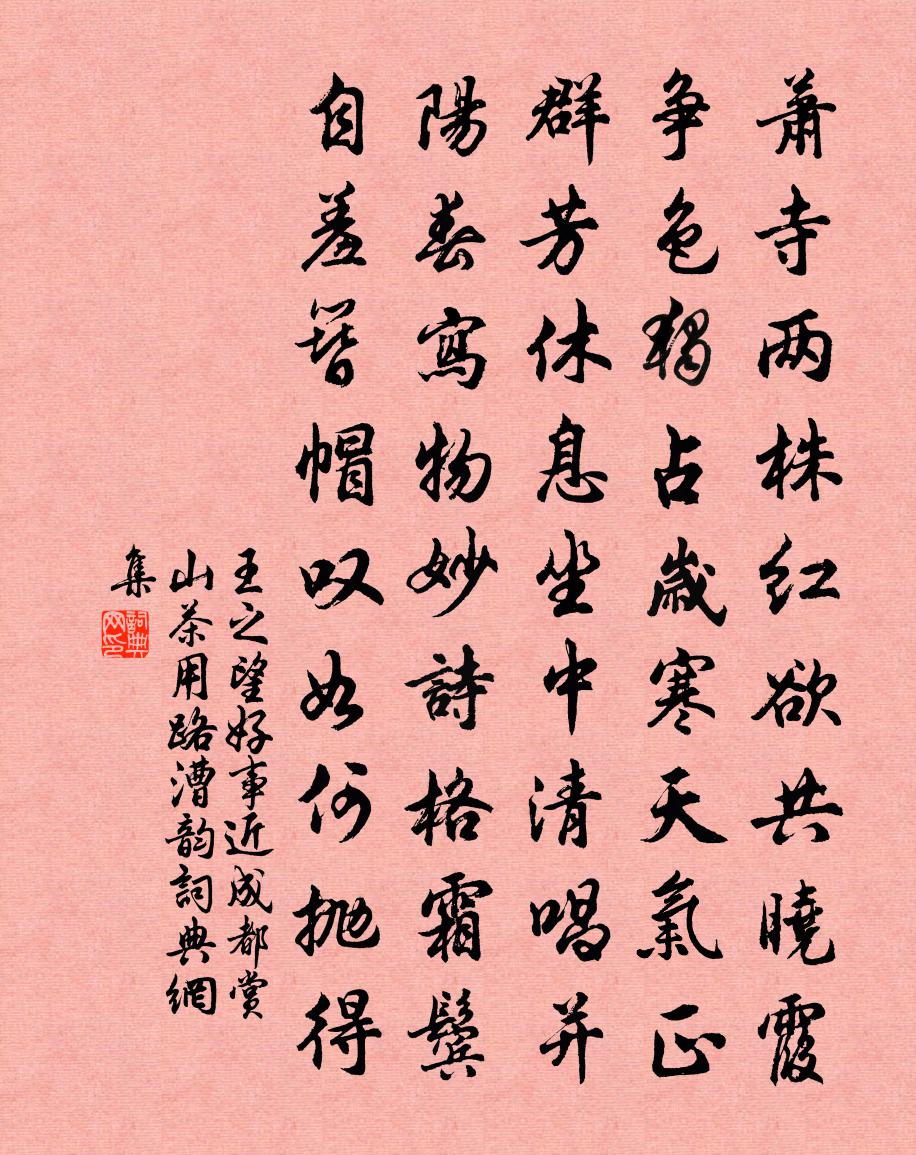 蕭寺两株红欲共曉霞
争色獨占歲寒天氣正
群芳休息坐中清唱并
陽春寫物妙詩格霜鬓
自羞簪帽叹如何抛得
王之望好事近成都赏
山茶用路漕韵詞典網
集
詞典網印